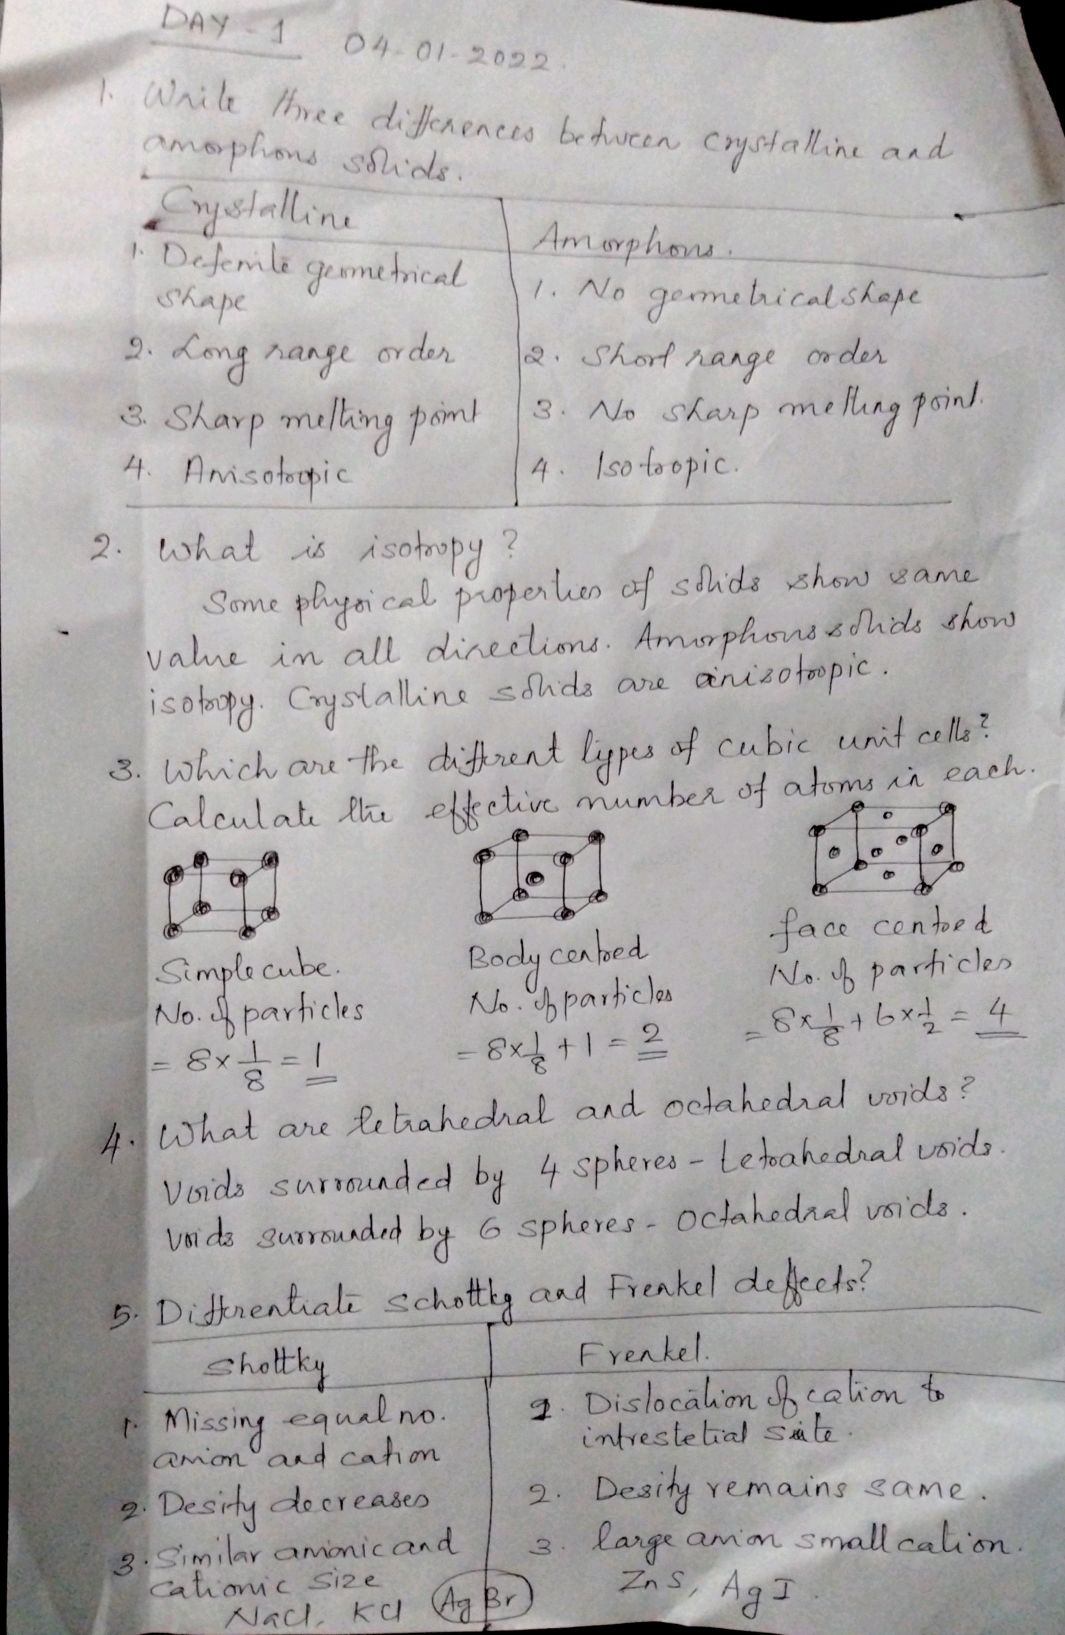 DAY - 1 04-01-2022.
1. Write three differences between crystalline and
amorphous solids.
Crystalline
Amorphous.
1. Defenite geometrical
shape
1. No geometrical shape
2. Long range order
2. Short range order
3. Sharp melting point
3. No sharp melting point.
4. Anisotropic
4. Isotropic.
2. What is isotropy?
Some physical properties of solids show same
value in all directions. Amorphous solids show
isotropy. Crystalline solids are anisotropic.
3. Which are the different types of cubic unit cells?
Calculate the effective number of atoms in each.
Simple cube.
No. of particles
= 8 × 1/8 = 1
Body centred
No. of particles
= 8 × 1/8 + 1 = 2
face centred
No. of particles
= 8 × 1/8 + 6 × 1/2 = 4
4. What are tetrahedral and octahedral voids?
Voids surrounded by 4 spheres - tetrahedral voids.
Voids surrounded by 6 spheres - octahedral voids.
5. Differentiate schottky and Frenkel deffects?
Shottky
Frenkel.
1. Missing equal no.
anion and cation
1. Dislocation of cation to
intrestetial site.
2. Desity decreases
2. Desity remains same.
3. Similar anionic and
cationic size
NaCl, KCl
3. large anion small cation.
ZnS, AgI.
AgBr